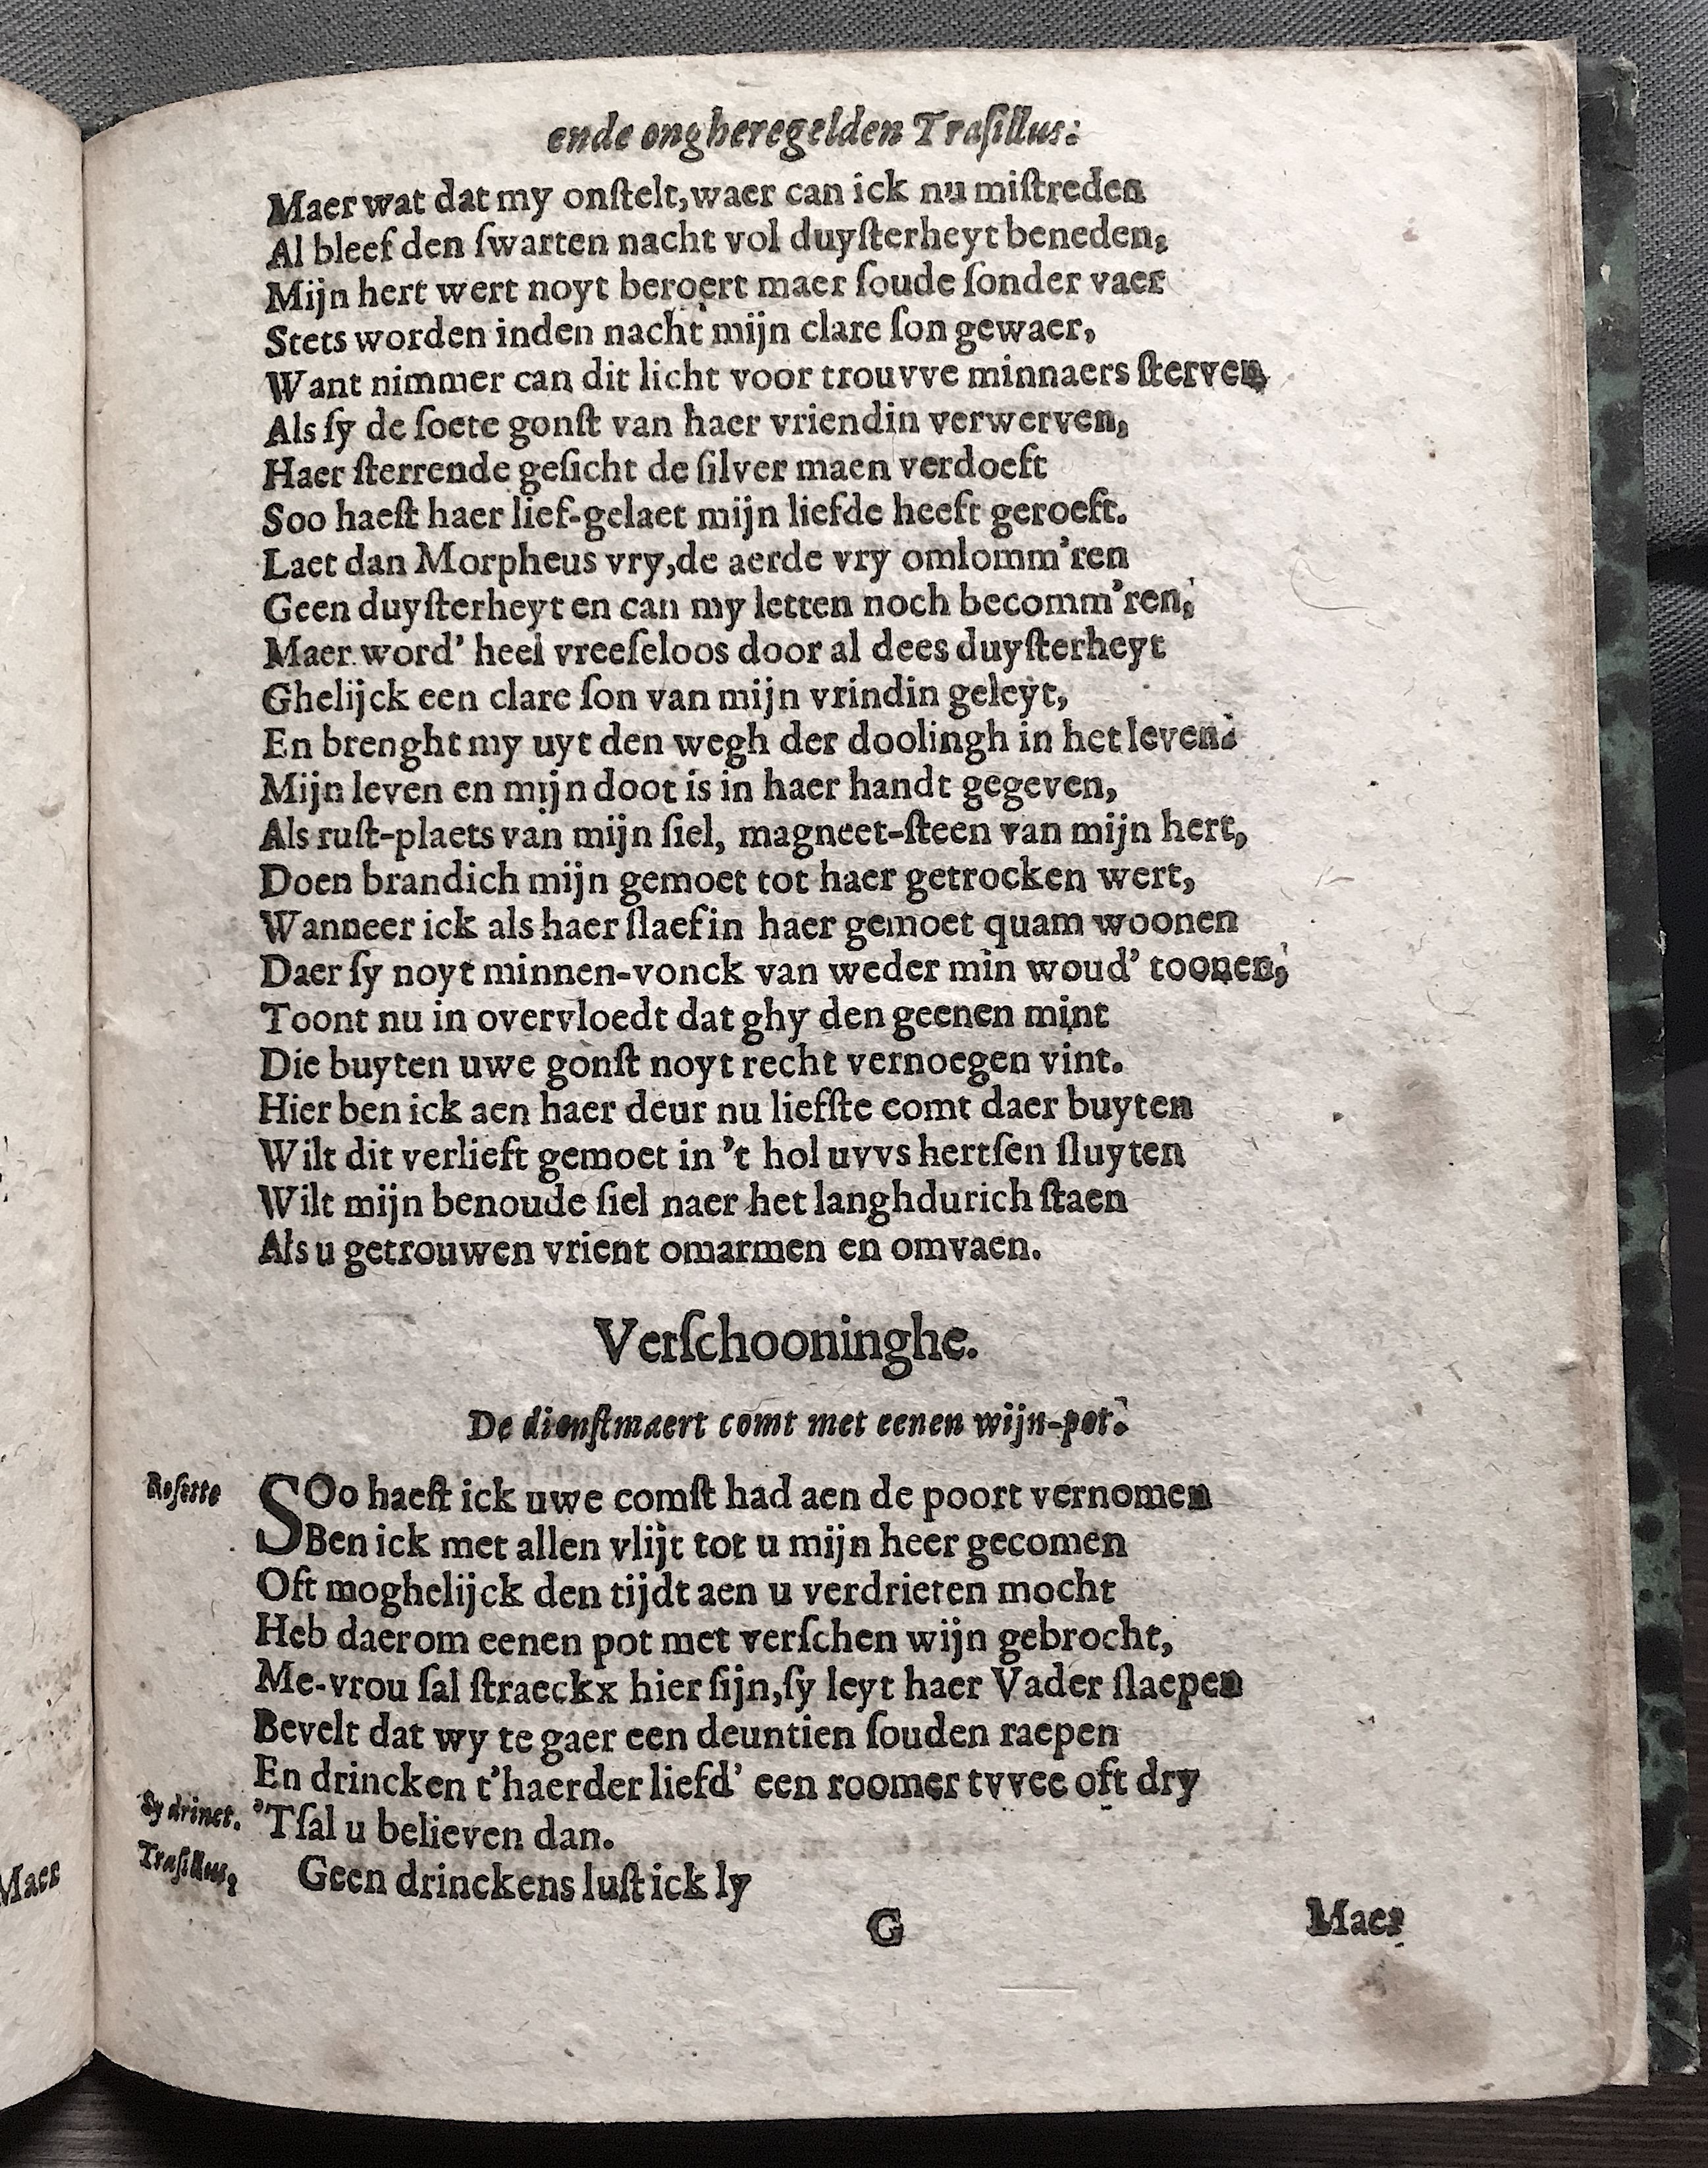 ende ongheregelden Traſillus:
Maer wat dat my onſtelt, waer can ick nu miſtreden
Al bleef den ſwarten nacht vol duyſterheyt beneden,
Mijn hert wert noyt beroert maer ſoude ſonder vaer
Stets worden inden nacht mijn clare ſon gewaer,
Want nimmer can dit licht voor trouvve minnaers ſterven
Als ſy de ſoete gonſt van haer vriendin verwerven,
Haer ſterrende geſicht de ſilver maen verdoeft
Soo haeſt haer lief-gelaet mijn liefde heeft geroeft.
Laet dan Morpheus vry, de aerde vry omlomm'ren
Geen duyſterheyt en can my letten noch becomm'ren,
Maer word' heel vreeſeloos door al dees duyſterheyt
Ghelijck een clare ſon van mijn vrindin geleyt,
En brenght my uyt den wegh der doolingh in het leven.
Mijn leven en mijn doot is in haer handt gegeven,
Als ruſt-plaets van mijn ſiel, magneet-ſteen van mijn hert,
Doen brandich mijn gemoet tot haer getrocken wert,
Wanneer ick als haer ſlaef in haer gemoet quam woonen
Daer ſy noyt minnen-vonck van weder min woud' toonen,
Toont nu in overvloedt dat ghy den geenen mint
Die buyten uwe gonſt noyt recht vernoegen vint.
Hier ben ick aen haer deur nu liefſte comt daer buyten
Wilt dit verlieft gemoet in 't hol uvvs hertſen ſluyten
Wilt mijn benoude ſiel naer het langhdurich ſtaen
Als u getrouwen vrient omarmen en omvaen.
Verſchooninghe.
De dienſtmaert comt met eenen wijn-pot.
Roſette SOo haeſt ick uwe comſt had aen de poort vernomen
Ben ick met allen vlijt tot u mijn heer gecomen
Oft moghelijck den tijdt aen u verdrieten mocht
Heb daerom eenen pot met verſchen wijn gebrocht,
Me-vrou ſal ſtraeckx hier ſijn, ſy leyt haer Vader ſlaepen
Bevelt dat wy te gaer een deuntien ſouden raepen
En drincken t'haerder liefd' een roomer tvvee oft dry
Sy drinct. 'Tſal u believen dan.
Traſillus, Geen drinckens luſt ick ly
G Maer
Maer